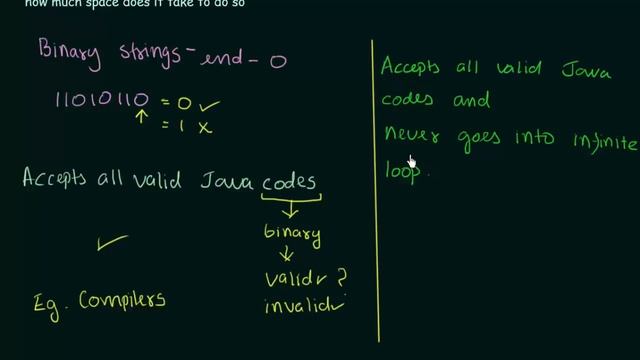 how much space does it take to do so
Binary strings - end - 0
11010110 = 0 ✓
= 1 x
Accepts all valid Java codes
binary
valid ✓ ?
invalid ✓
✓
Eg. Compilers
Accepts all valid Java
codes and
never goes into infinite
loop.